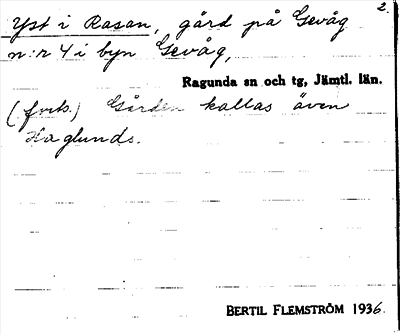 2.
Yst i Rasan, gård på Gevåg
n:r 4 i byn Gevåg,
Ragunda sn och tg, Jämtl. län.
(forts.) Gården kallas även
Haglunds.
BERTIL FLEMSTRÖM 1936.